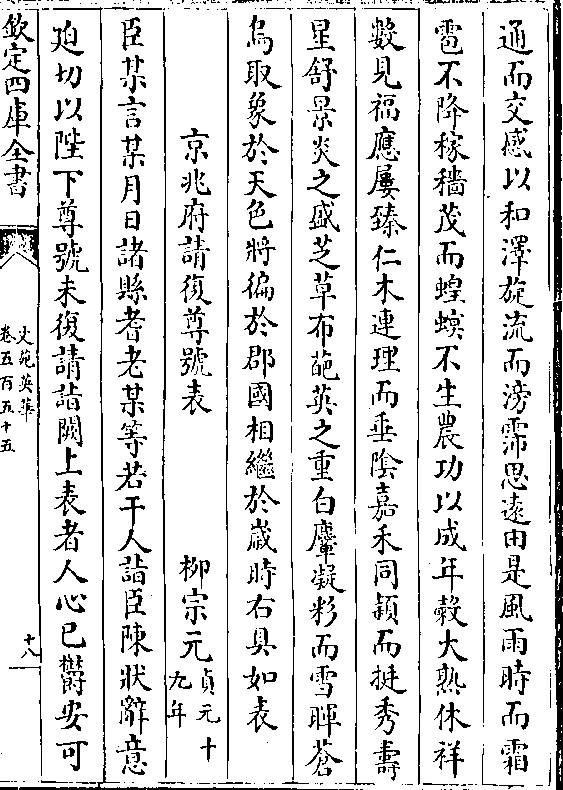 通而交感以和澤旋流而滂霈思遠由是風雨時而霜
雹不降稼穡茂而蝗螟不生農功以成年穀大熟休祥
數見福應屢臻仁木連理而垂陰嘉禾同穎而挺秀壽
星舒景炎之盛芝草布葩英之重白麞凝彩而雪暉蒼
烏取象於天色將徧於郡國相繼於歲時右具如表
京兆府請復尊號表 柳宗元 貞元十九年
臣某言某月日諸縣耆老某等若干人詣臣陳狀辭意
迫切以陛下尊號未復請詣闕上表者人心已鬱安可
欽定四庫全書
文苑英華
卷五百五十五
十八